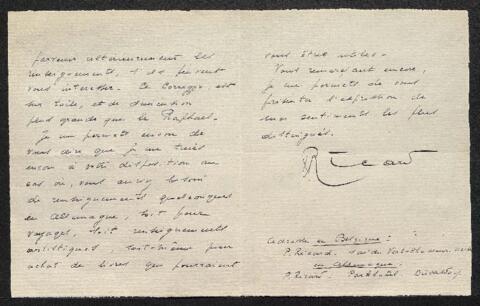 parvenir ultérieurement les
renseignements, s'ils peuvent
vous intéresser. Le Correggio est
sur toile, et de dimension
plus grande que le Raphael.
Je me permets encore de
vous dire que je me tiens
encore à votre disposition au
cas où, vous auriez besoin
de renseignements quelconques
en Allemagne, soit pour
voyages, soit renseignements
artistiques, soit même pour
achat de livres qui pourraient
vous être utiles.
Vous remerciant encore,
je me permets de vous
présenter l'expression de
mes sentiments les plus
distingués.
Ricard
adresse en Belgique :
P. Ricard.
en Allemagne :
P. Ricard. Parkhotel Düsseldorf